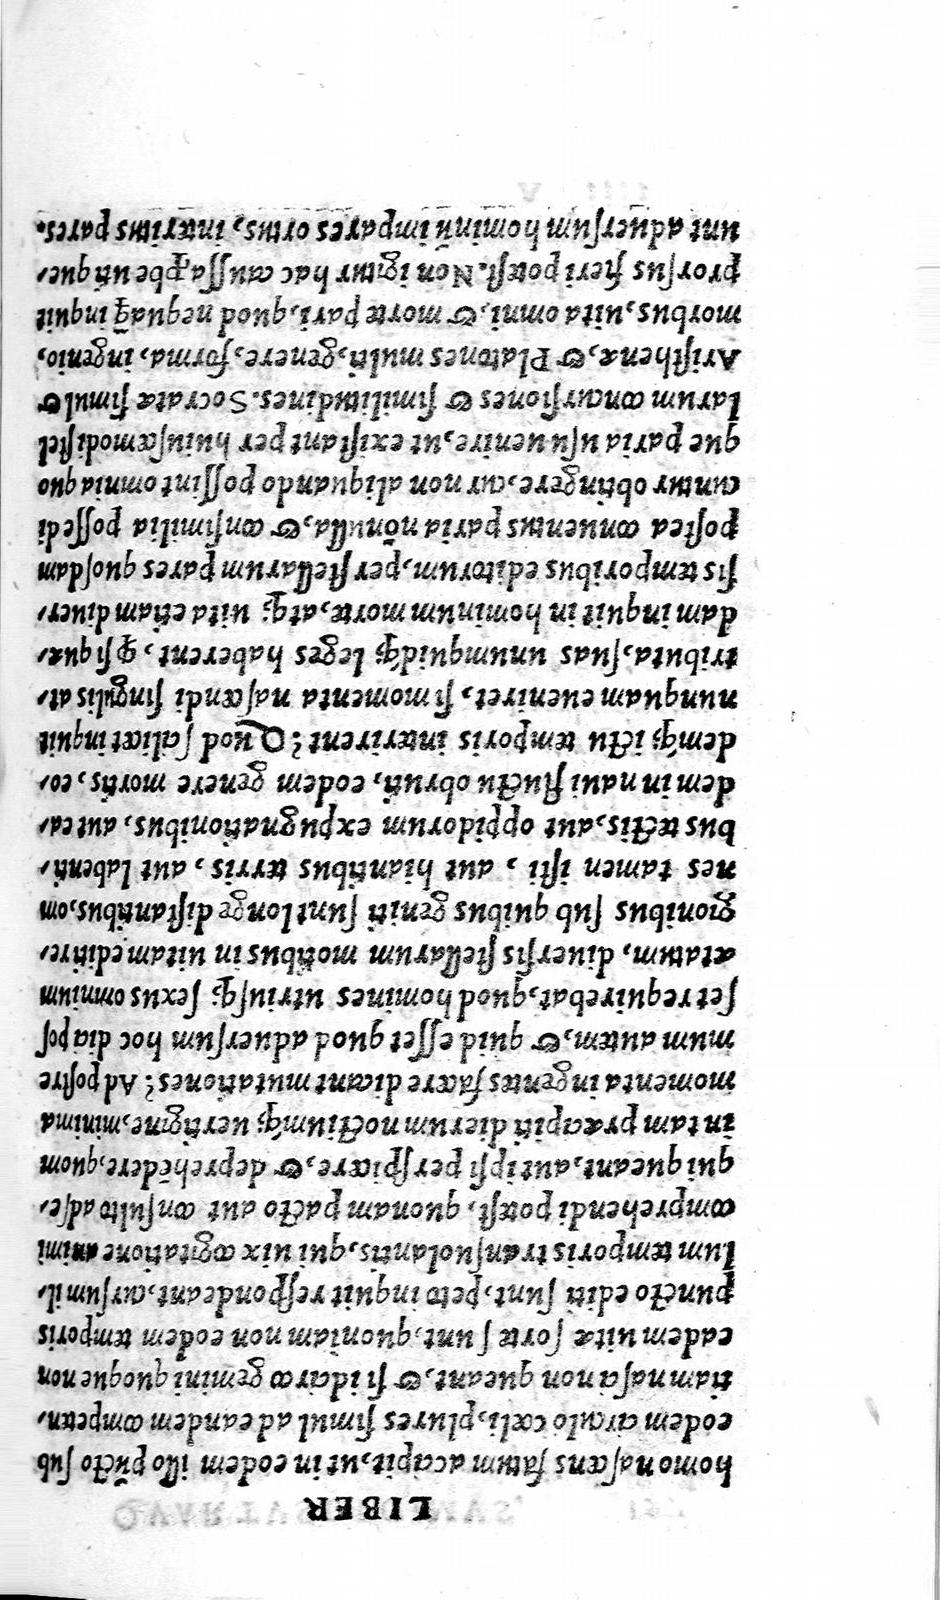 LIBER
homo nascens fatum accipit, ut in eodem illo pūcto sub
eodem circulo cœli, plures simul ad eandem competen-
tiam nasci non queant, & si idcirco gemini quoque non
eadem uitæ sorte sunt, quoniam non eodem temporis
puncto editi sunt, peto inquit respondeant, cursum il-
lum temporis transuolantis, qui uix cogitatione animi
comprehendi potest, quonam pacto aut consulto adse-
qui queant, aut ipsi perspicere, & deprehēdere, quom
in tam præcipiti dierum noctiumq; uertigine, minima
momenta ingentes facere dicant mutationes? Ad postre
mum autem, & quid esset quod aduersum hoc dia pos
set requirebat, quod homines utriusq; sexus omnium
ætatum, diuersis stellarum motibus in uitam editi re-
gionibus sub quibus geniti sunt longe distantibus, om
nes tamen isti, aut hiantibus terris, aut labenti-
bus tectis, aut oppidorum expugnationibus, aut ea-
dem in naui fluctu obruti, eodem genere mortis, eo-
demq; ictu temporis interirent? Quod scilicet inquit
nunquam eueniret, si momenta nascendi singulis at-
tributa, suas unumquidq; leges haberent, q̃ si quæ-
dam inquit in hominum morte, atq; uita etiam diuer-
sis temporibus editorum, per stellarum pares quosdam
postea conuentus paria nōnulla, & consimilia possedi
cuntur obtingere, cur non aliquando possint omnia quo
que paria usu uenire, ut existant per huiuscemodi stel
larum concursiones & similitudines. Socratæ simul &
Aristhenæ, & Platones multi, genere, forma, ingenio,
moribus, uita omni, & morte pari, quod nequaq̃ inquit
prorsus fieri potest. Non igitur hac caussa ꝓbe uti que-
unt aduersum hominū impares ortus, interitus pares.